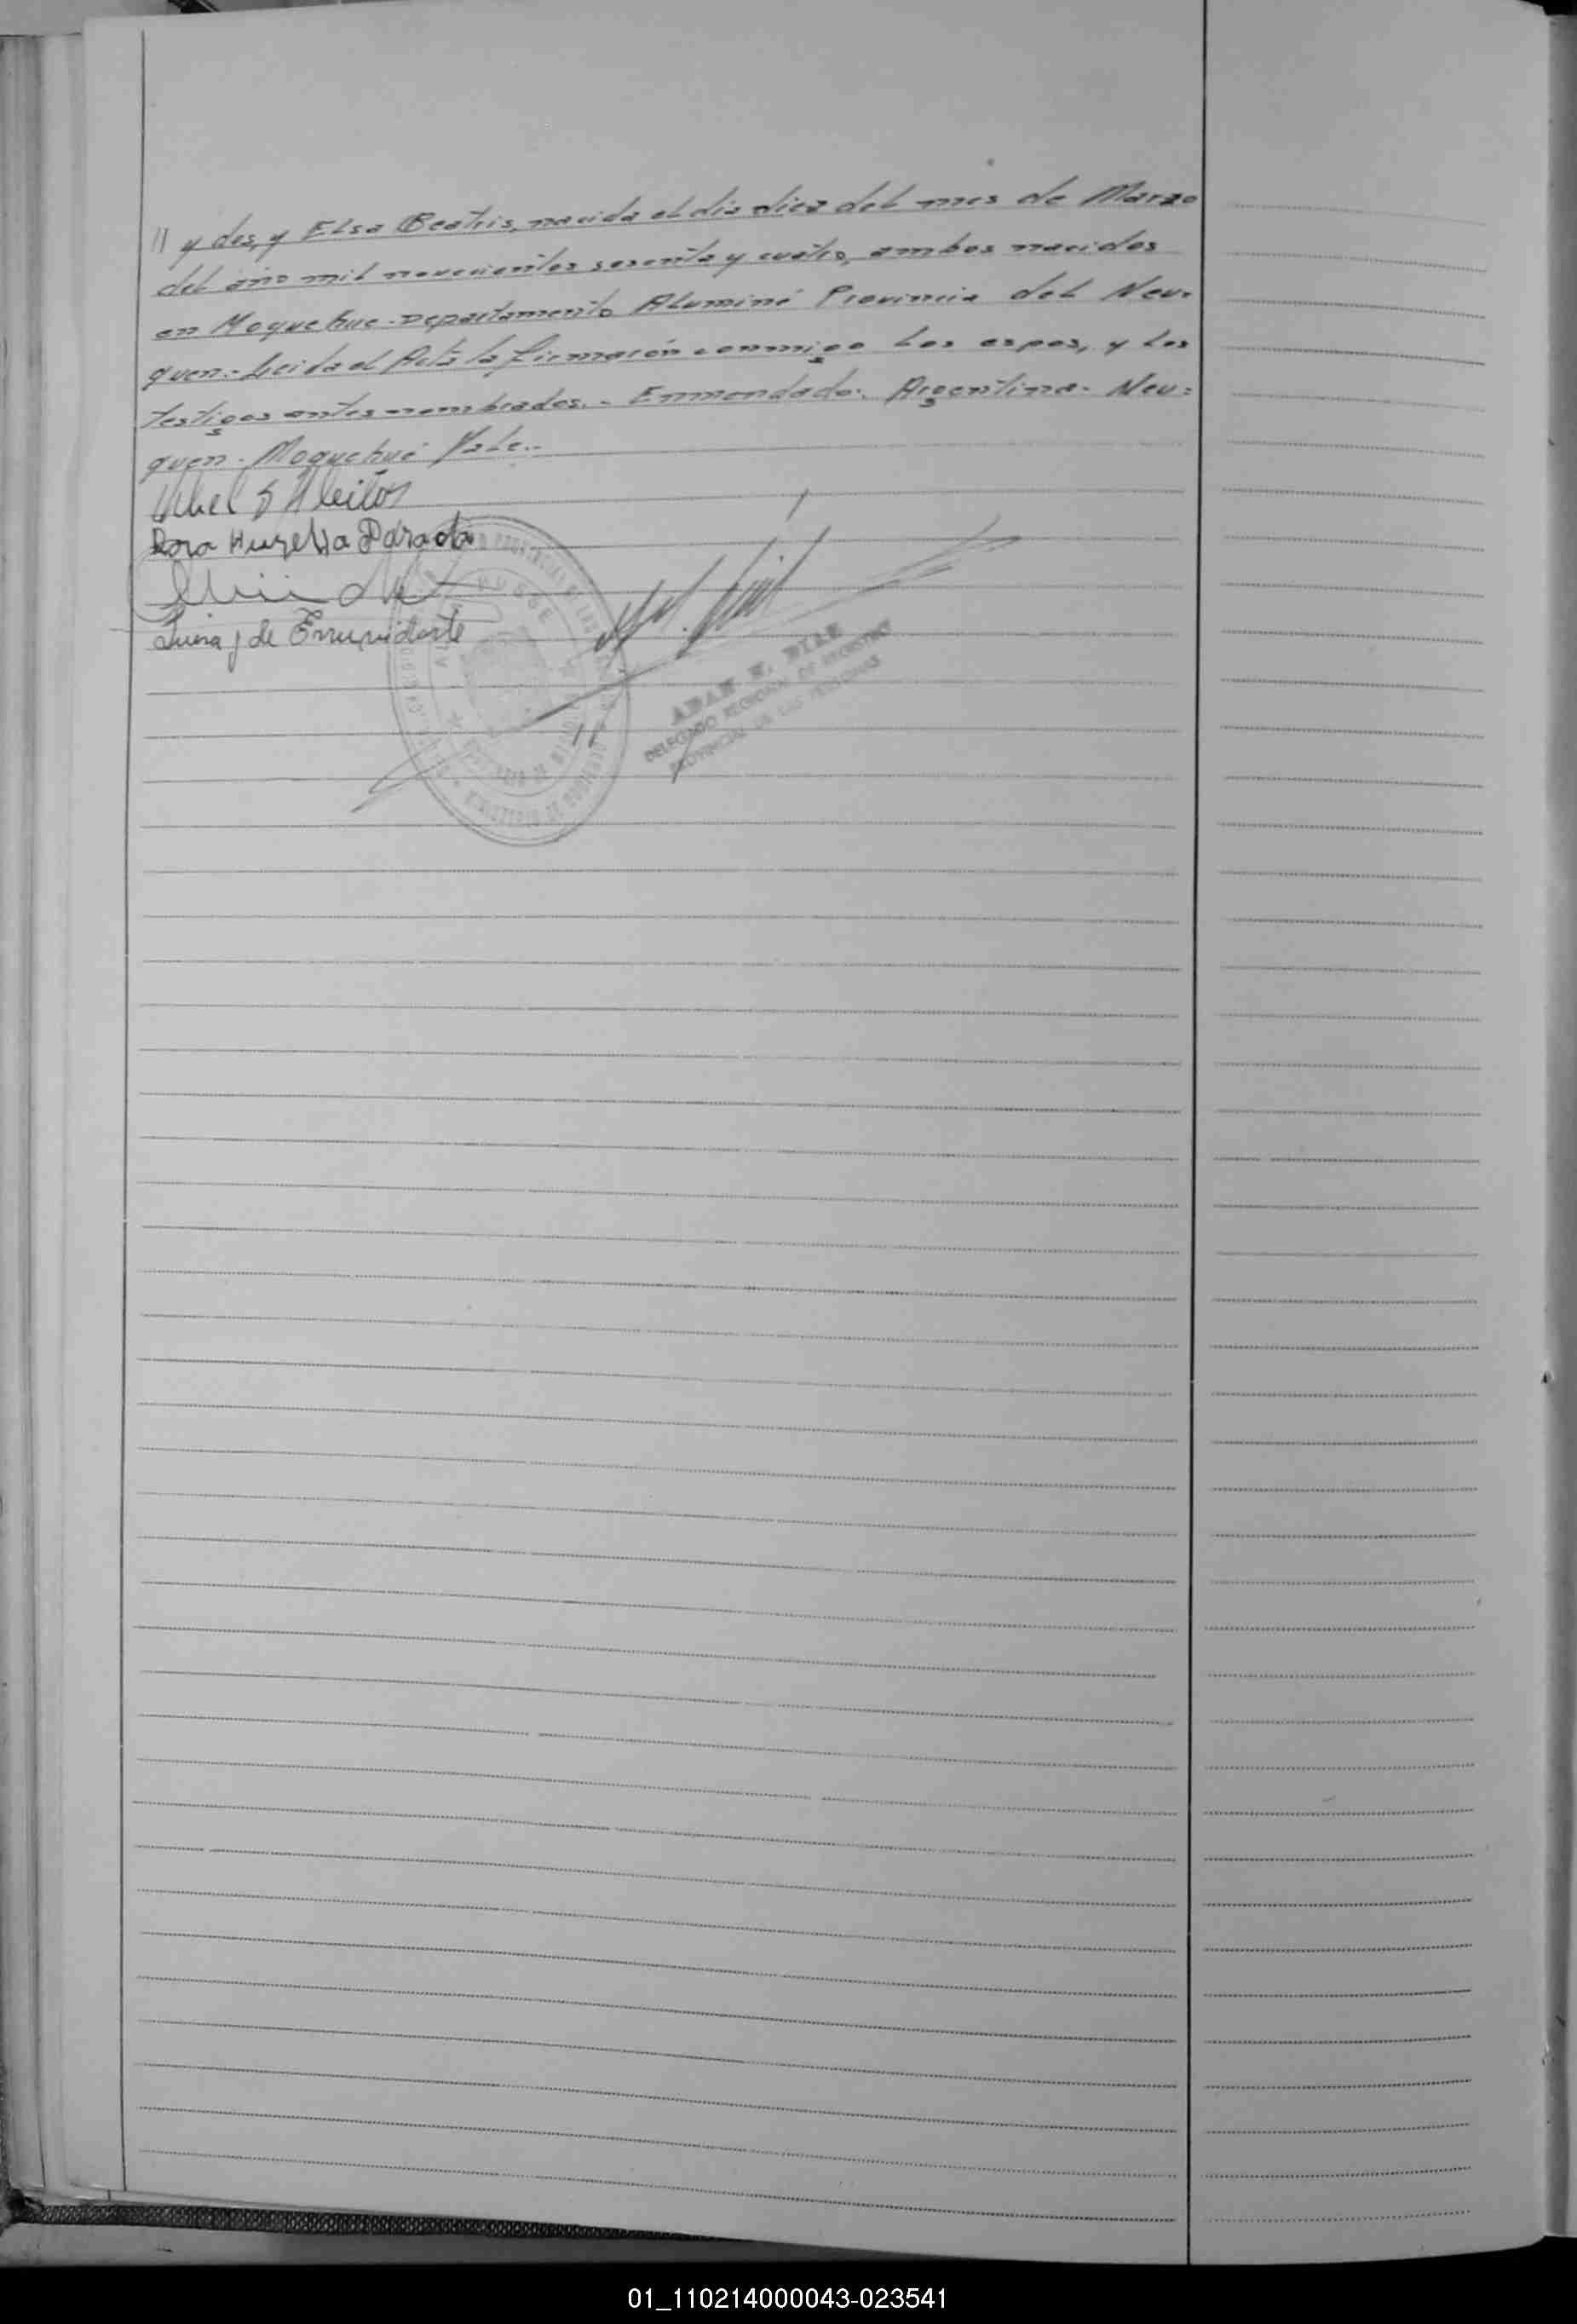 // y dos, y Elsa Beatris, nacida el dia diez del mes de Marzo
del año mil novecientos sesenta y cuatro, ambos nacidos
en Moquehue - Departamento Aluminé Provincia del Neu-
quen.- Leida el Acta la firmaron conmigo los espos, y los
testigos antes nombrados.- Enmendado: Argentina - Neu=
quen - Moquehué Vale.-
Rosa Aurelia Parada
de
ADAN E. DIAZ
DELEGADO REGIONAL DE REGISTRO
PROVINCIAL DE LAS PERSONAS
MINISTERIO DE GOBIERNO
01_110214000043-023541